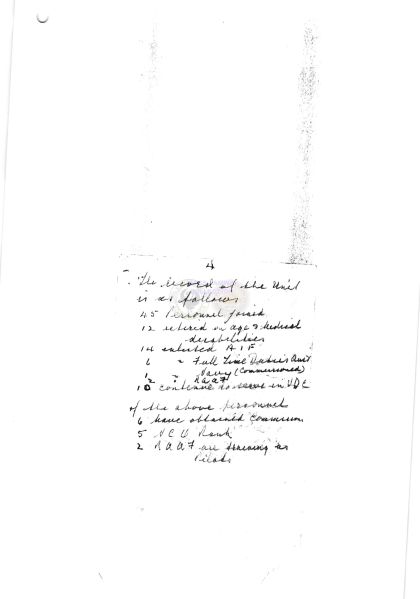 4
The record of the Unit
is as follows
45 Personnel joined
12 retired on age & Medical
disabilities
14 enlisted A I F
6 " Full Time Duties
1 " Navy (Commissioned)
2 " RAAF
10 continue to serve in VDC
of the above personnel
6 have obtained Commission
5 N C O Rank
2 R A A F are training as
Pilots